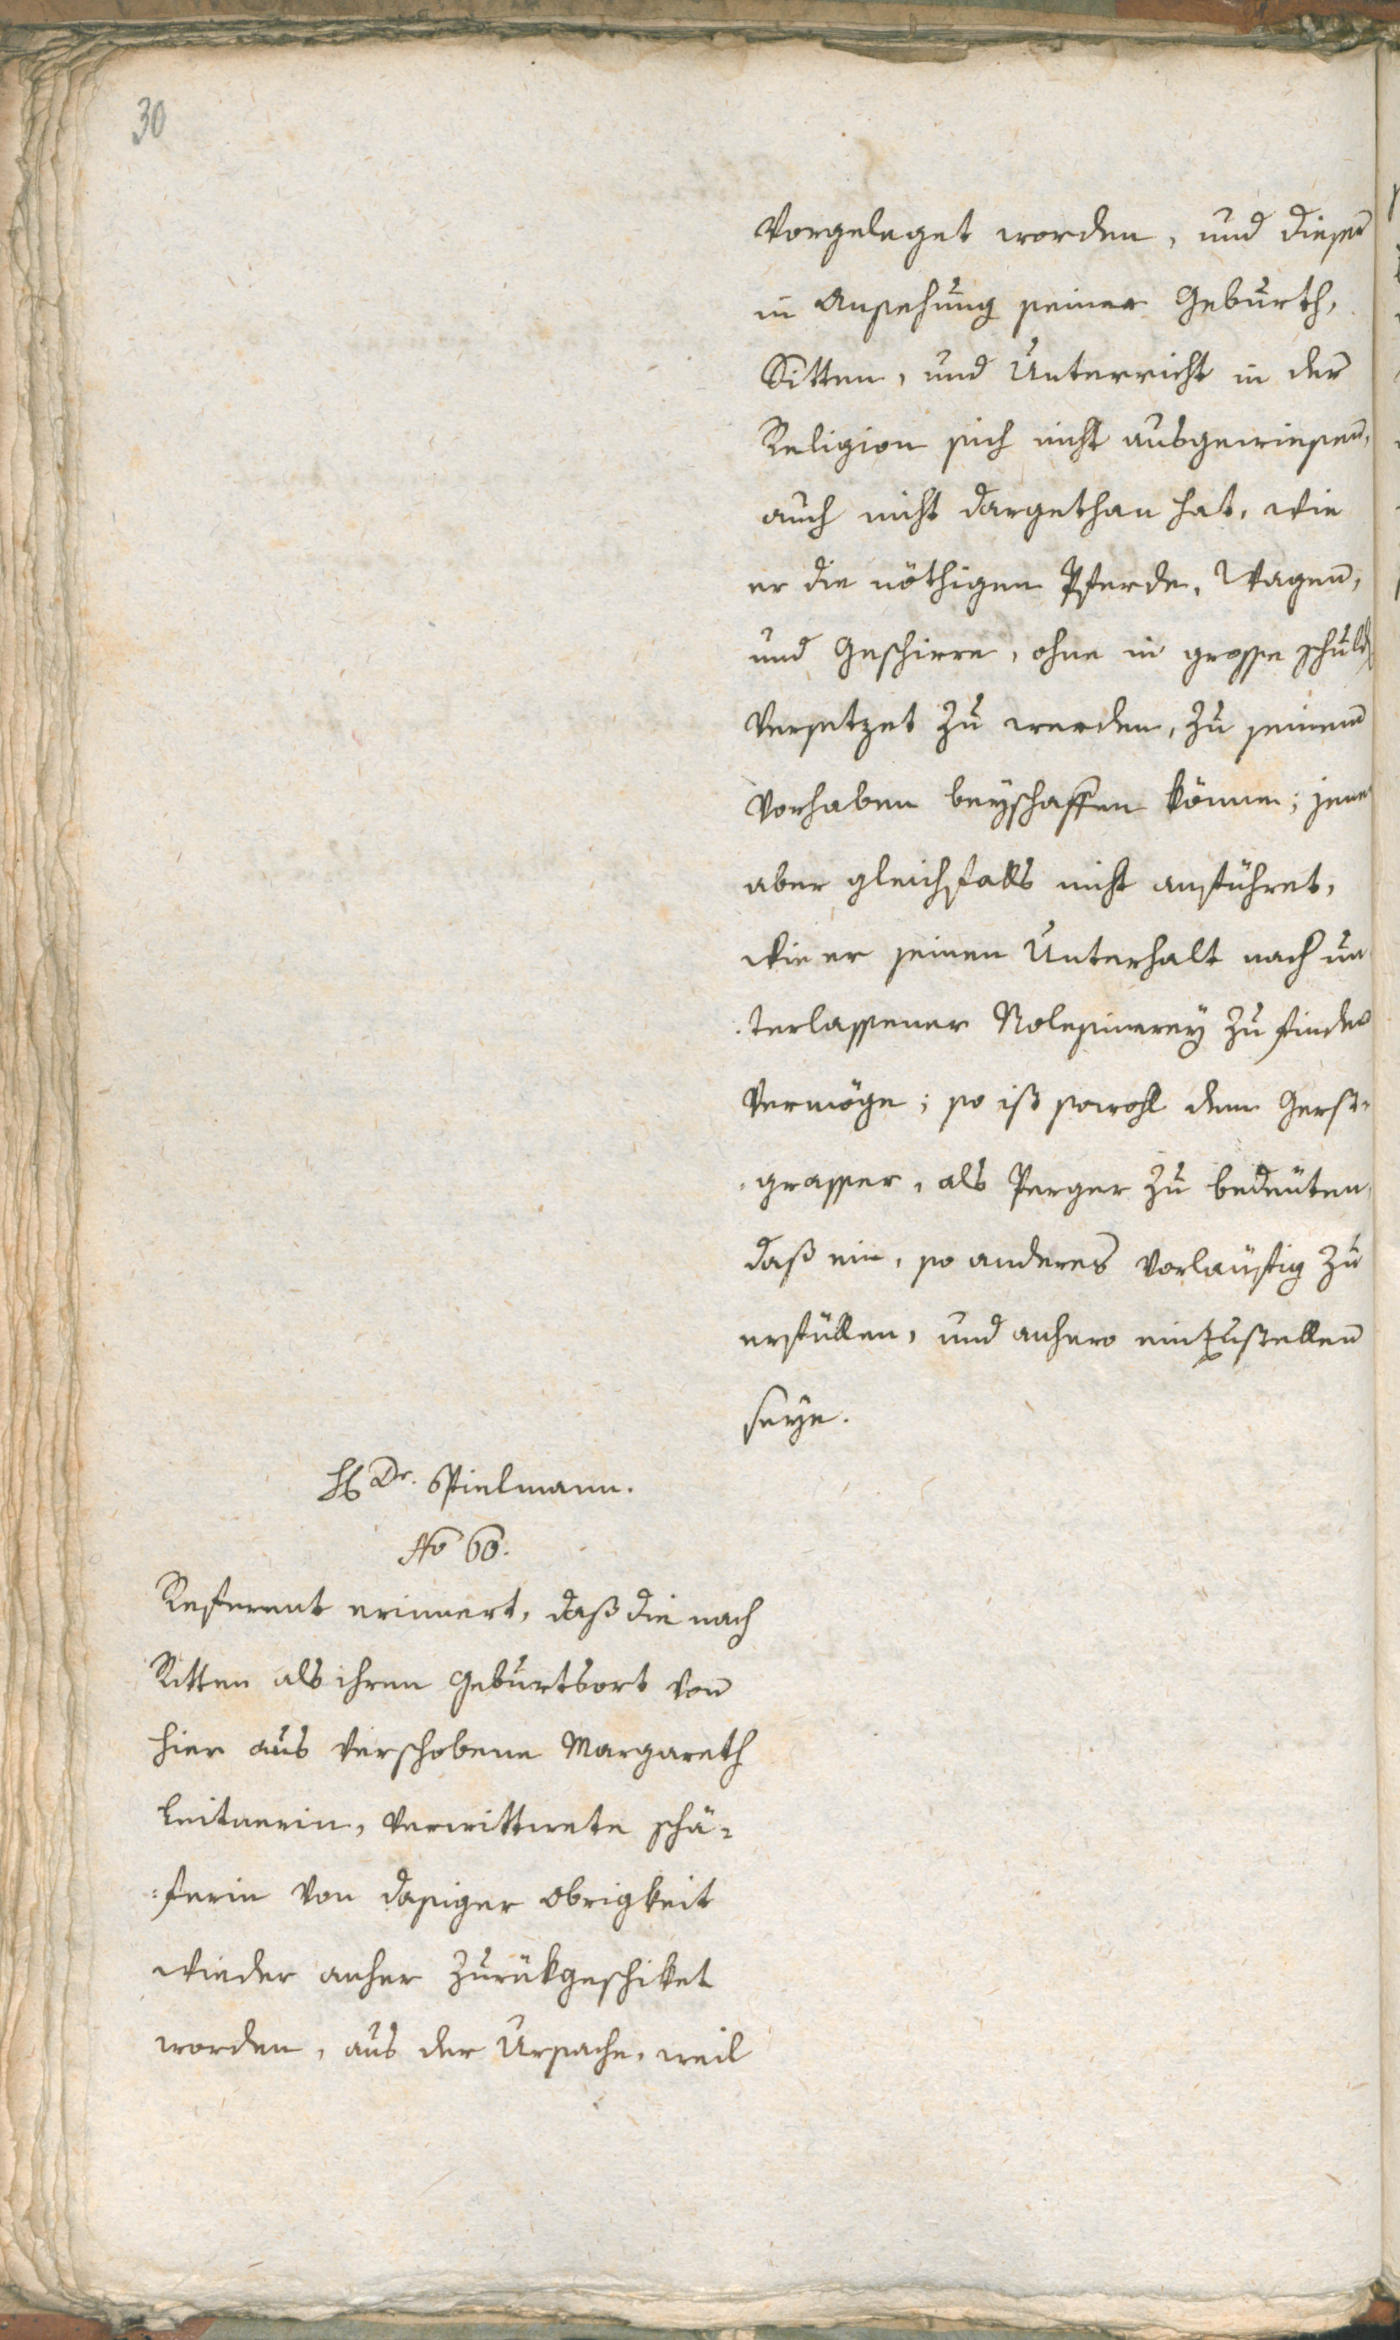 30
vorgeleget worden, und dieser
in Ansehung seiner Geburth,
Sitten, und Unterricht in der
Religion sich nicht ausgewiesen,
auch nicht dargethan hat, wie
er die nöthigen Pferde, Wagen,
und Geschirre, ohne in grosse schuld
versetzet zu werden, zu seinem
Vorhaben beyschaffen könne; jener
aber gleichfalls nicht anführet,
wie er seinen Unterhalt nach un
terlassener Nolesinerey zu finden
vermöge; so ist sowohl dem Gerst-
grasser, als Perger zu bedeuten,
daß ein, so anderes vorläufig zu
erfüllen, und anhero einzustellen
seye.
H Dr. Spielmann.
No 60.
Referent erinnert, daß die nach
Ritten als ihren Geburtsort von
hier aus verschobene Margareth
Leitnerin, verwittwete schä=
=ferin von dasiger Obrigkeit
wieder anher zurükgeschiket
worden, aus der Ursache, weil